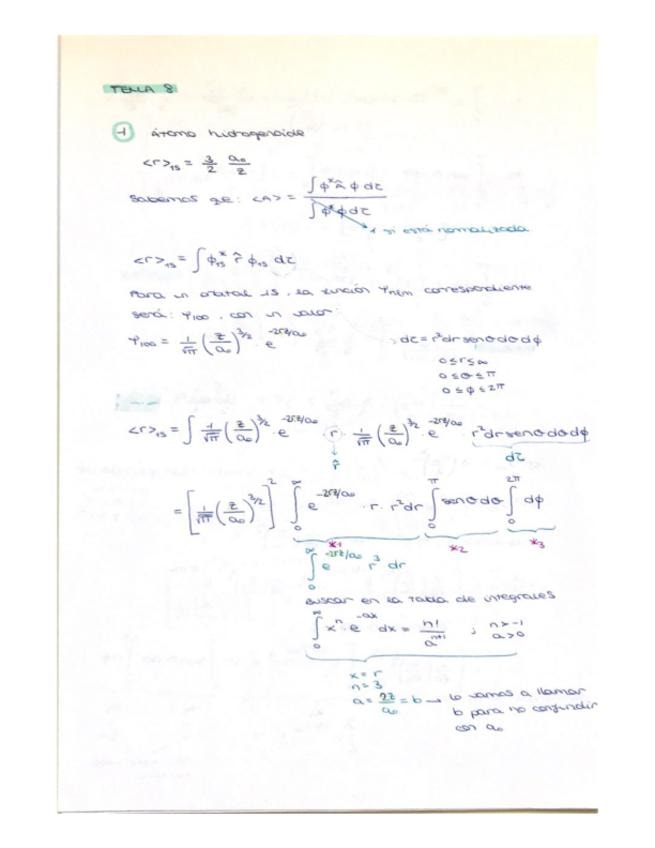 TEMA 8
1 átomo hidrogenoide
<r>₁ₛ = 3/2 a₀/Z
Sabemos qe: <A> = ∫φ* Â φ dτ / ∫φ*φ dτ
1 si está normalizada
<r>₁ₛ = ∫φ₁ₛ* r̂ φ₁ₛ dτ
Para un orbital 1s, la función Ψnlm correspondiente
será: Ψ₁₀₀, con un valor:
Ψ₁₀₀ = 1/√π (Z/a₀)^3/2 · e^-2rZ/a₀ ; dτ = r²dr senθdθdϕ
0 ≤ r ≤ ∞
0 ≤ θ ≤ π
0 ≤ ϕ ≤ 2π
<r>₁ₛ = ∫ 1/√π (Z/a₀)^3/2 · e^-2rZ/a₀ r 1/√π (Z/a₀)^3/2 · e^-2rZ/a₀ r²dr senθdθdϕ
r̂ dτ
= [1/√π (Z/a₀)^3/2]² ∫₀^∞ e^-2rZ/a₀ · r · r²dr ∫₀^π senθdθ ∫₀^2π dϕ
*1 *2 *3
∫₀^∞ e^-2rZ/a₀ r³ dr
Buscar en la tabla de integrales
∫₀^∞ xⁿ · e^-ax dx = n!/a^n+1 ; n>-1
a>0
x = r
n = 3
a = 2Z/a₀ = b → lo vamos a llamar
b para no confundir
con a₀